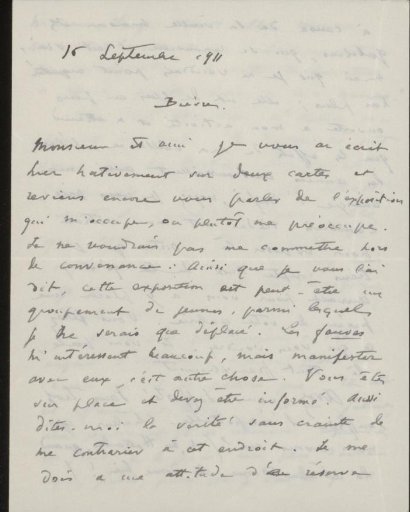 15 Septembre 1911
Bièvres.
Monsieur et ami je vous ai écrit
hier hativement sur deux cartes et
reviens encore vous parler de l'exposition
qui m'occupe, ou plutôt me préoccupe.
Je ne voudrais pas me commettre hors
de convenance : ainsi que je vous l'ai
dit, cette exposition est peut-être un
groupement de jeunes, parmi lesquels
je ne serais que déplacé. Les fauves
m'intéressent beaucoup, mais manifester
avec eux, c'est autre chose. Vous êtes
sur place et devez être informé. Aussi
dites-moi la vérité sans crainte de
me contrarier à cet endroit. Je me
dois à une attitude de réserve